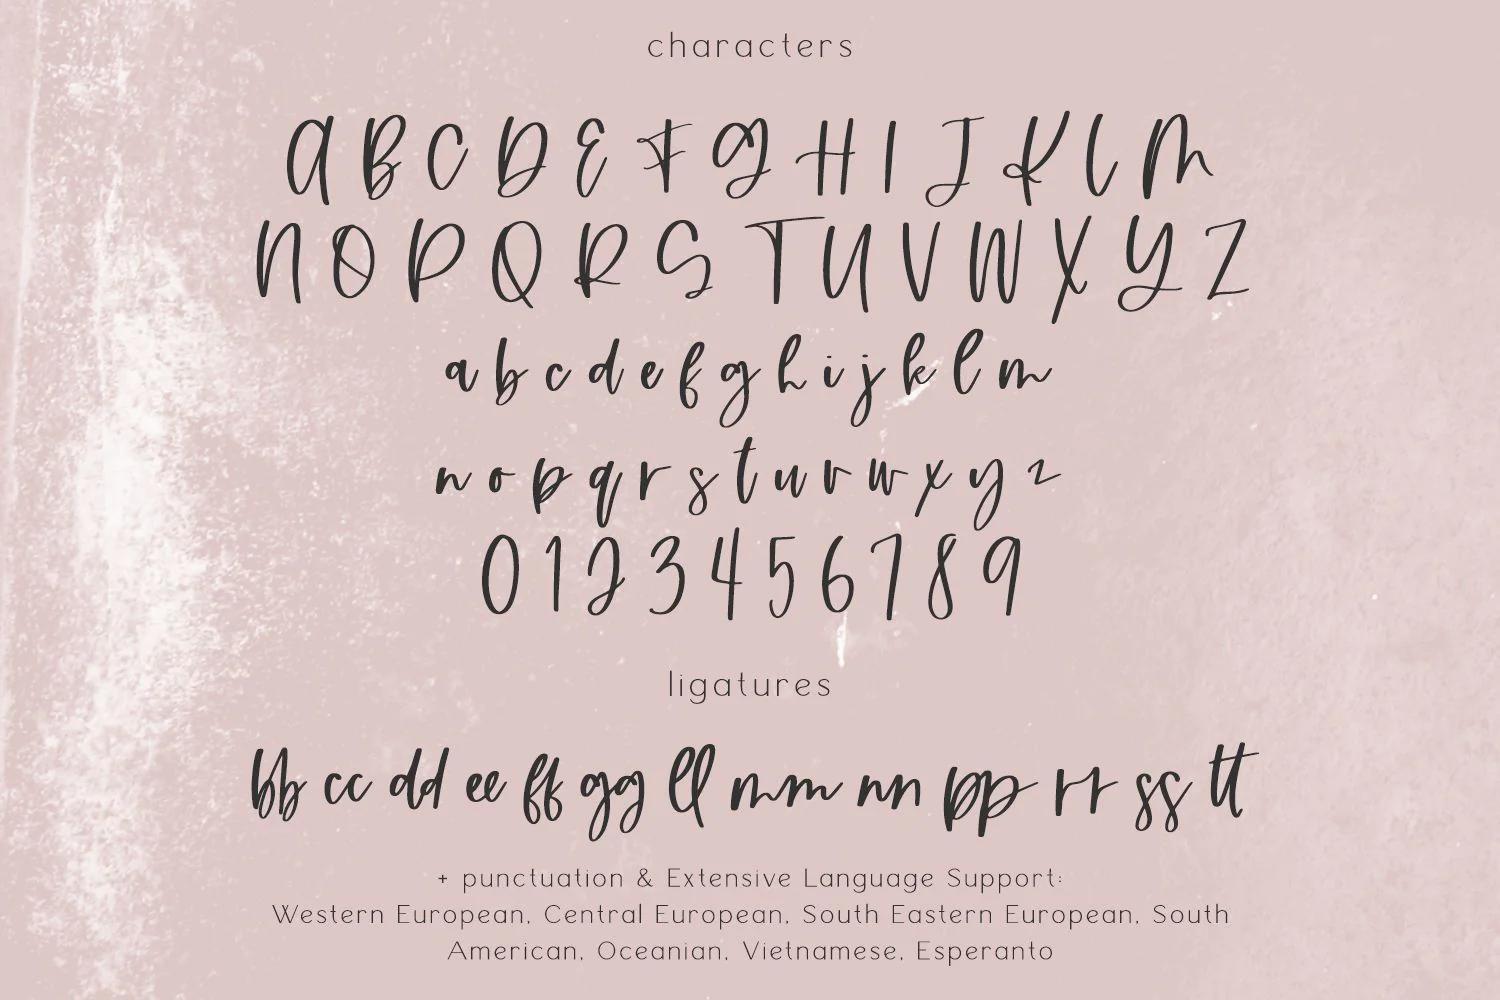 characters
A B C D E F G H I J K L M
N O P Q R S T U V W X Y Z
a b c d e f g h i j k l m
n o p q r s t u v w x y z
0 1 2 3 4 5 6 7 8 9
ligatures
bb cc dd ee ff gg ll mm nn pp rr ss tt
+ punctuation & Extensive Language Support:
Western European, Central European, South Eastern European, South
American, Oceanian, Vietnamese, Esperanto